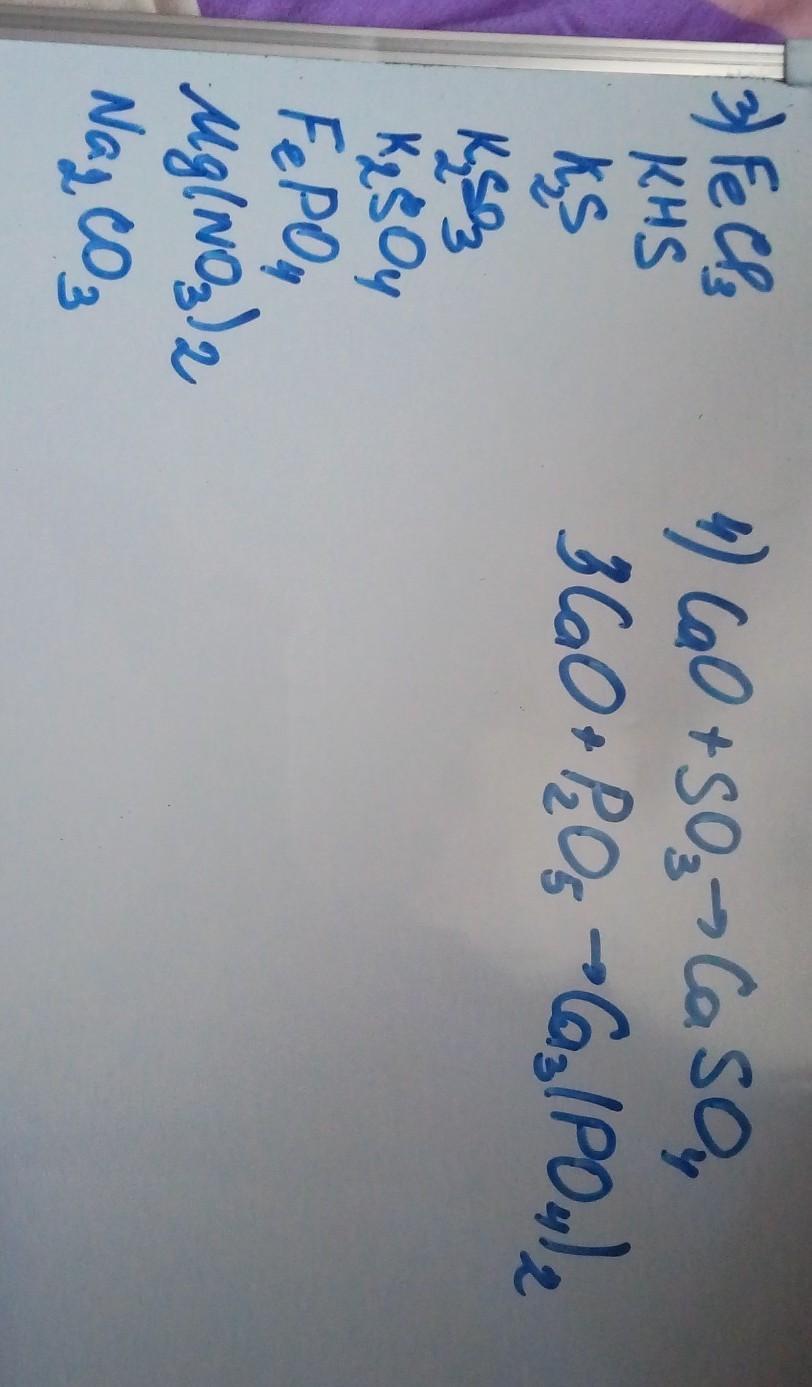 3) FeCl₃
KHS
K₂S
K₂SO₃
K₂SO₄
FePO₄
Mg(NO₃)₂
Na₂CO₃
4) CaO + SO₃ → CaSO₄
3CaO + P₂O₅ → Ca₃(PO₄)₂